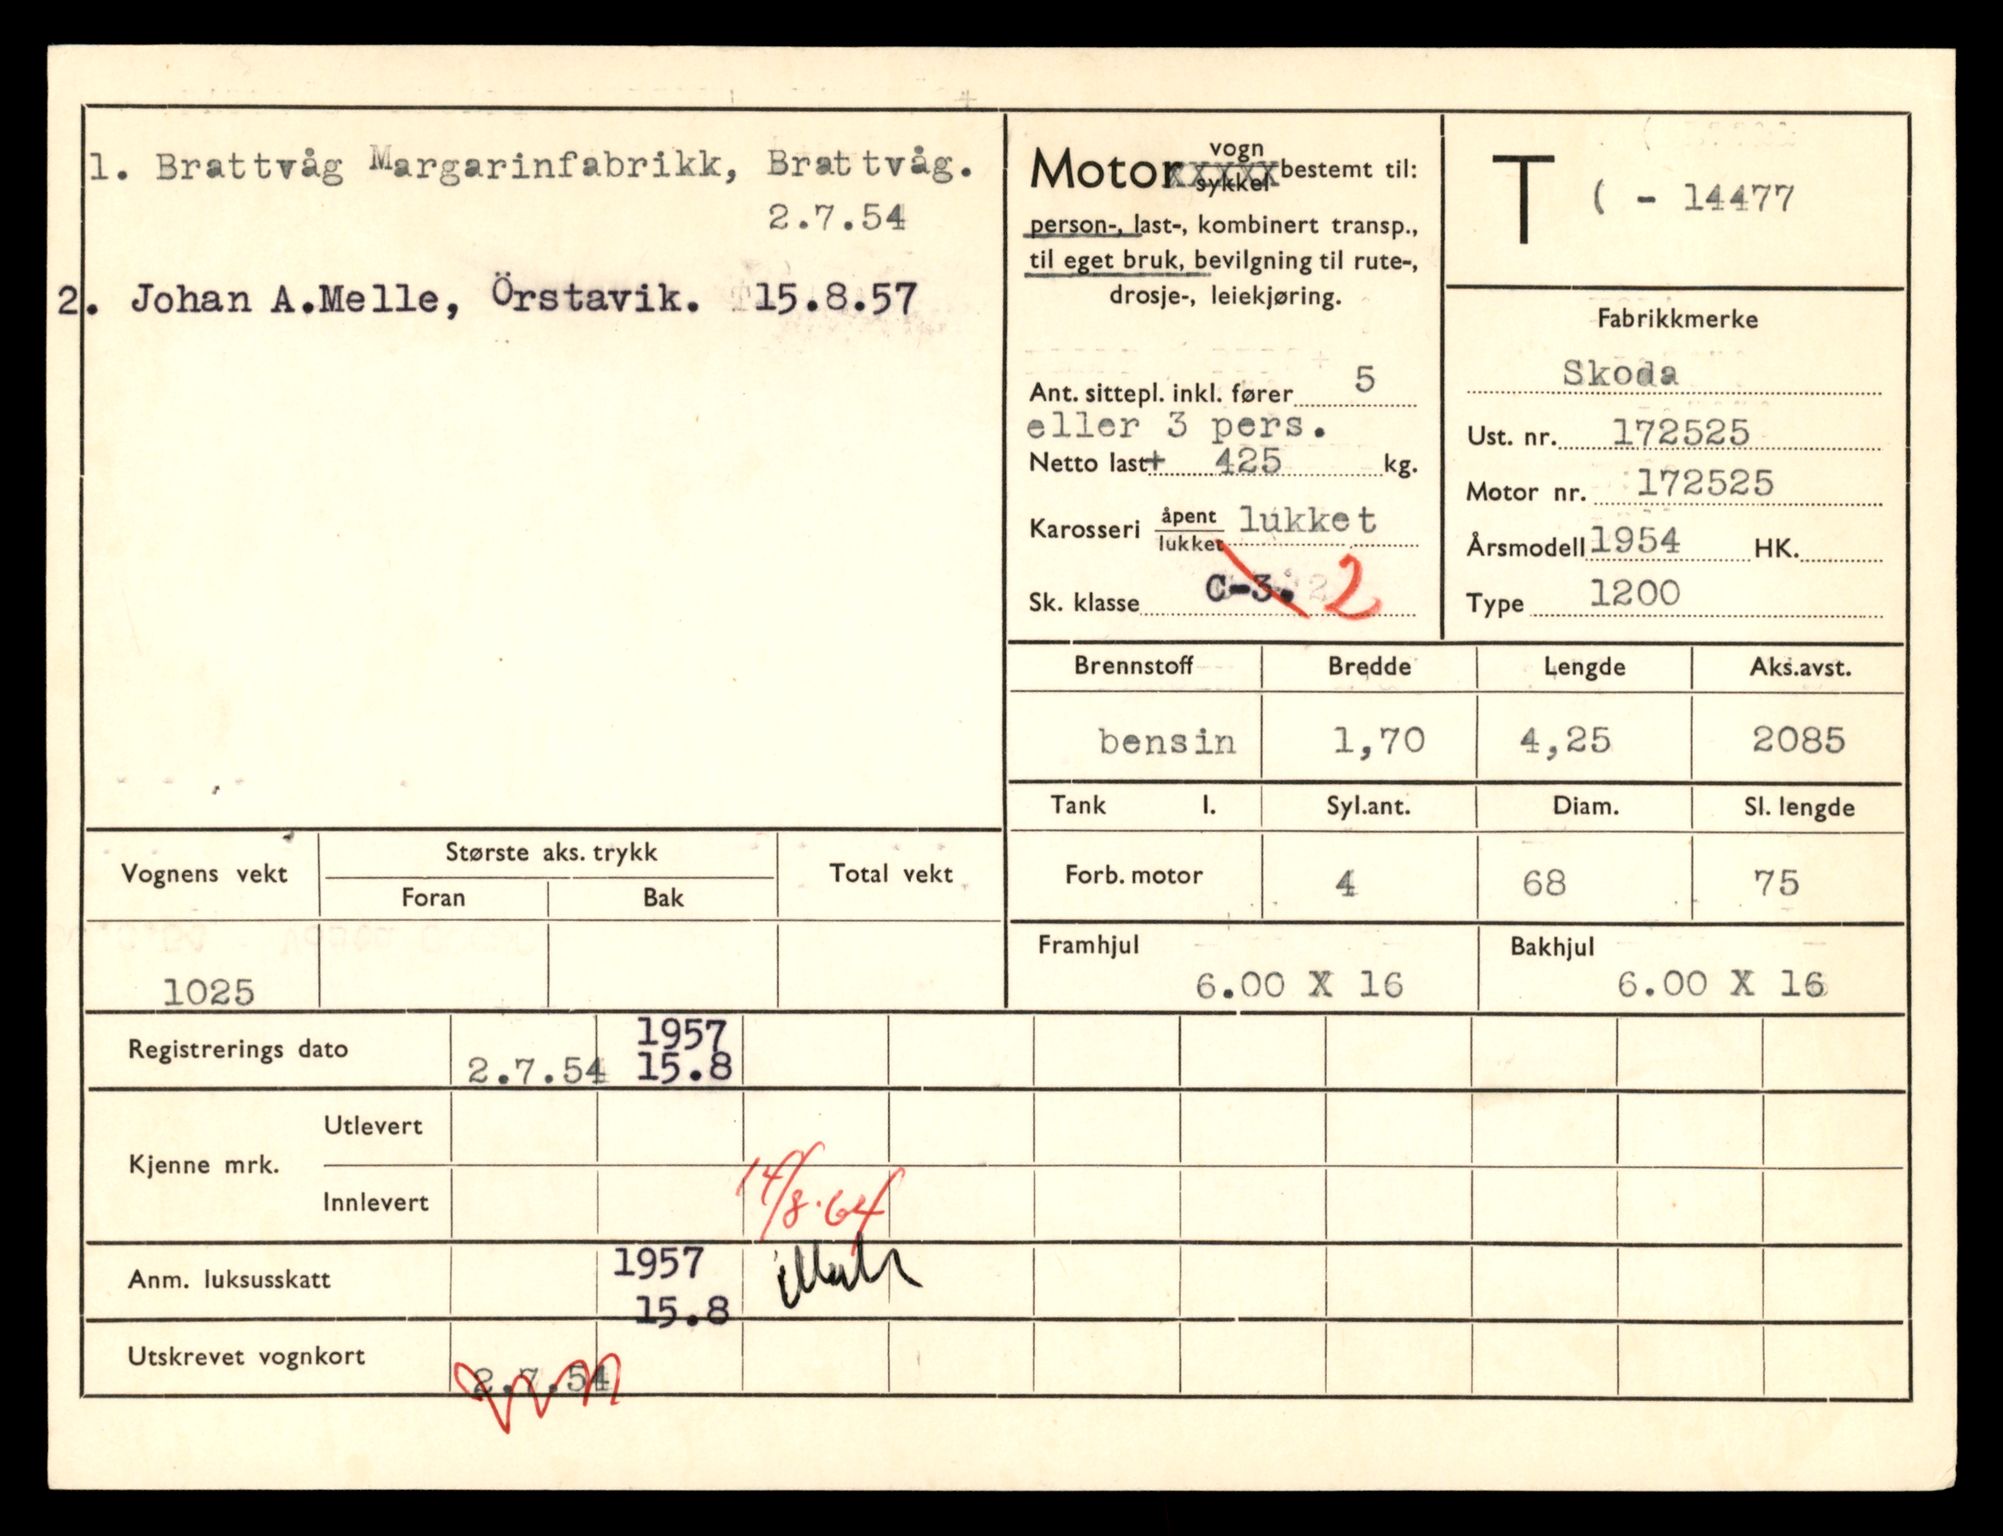 1. Brattvåg Margarinfabrikk, Brattvåg.
2.7.54
2. Johan A.Melle, Örstavik. 15.8.57
Motor vogn sykkel bestemt til:
person-, last-, kombinert transp.,
til eget bruk, bevilgning til rute-,
drosje-, leiekjøring.
Ant. sittepl. inkl. fører 5
eller 3 pers.
Netto last + 425 kg.
Karosseri åpent lukket lukket
Sk. klasse C-3. 2
T ( - 14477
Fabrikkmerke
Skoda
Ust. nr. 172525
Motor nr. 172525
Årsmodell 1954 HK.
Type 1200
Brennstoff Bredde Lengde Aks.avst.
bensin 1,70 4,25 2085
Tank l. Syl.ant. Diam. Sl. lengde
Forb. motor 4 68 75
Framhjul Bakhjul
6.00 X 16 6.00 X 16
Vognens vekt Største aks. trykk Total vekt
Foran Bak
1025
Registrerings dato 2.7.54 1957
15.8
Kjenne mrk. Utlevert
Innlevert 14/8.64
Anm. luksusskatt 1957
15.8
Utskrevet vognkort 2.7.54